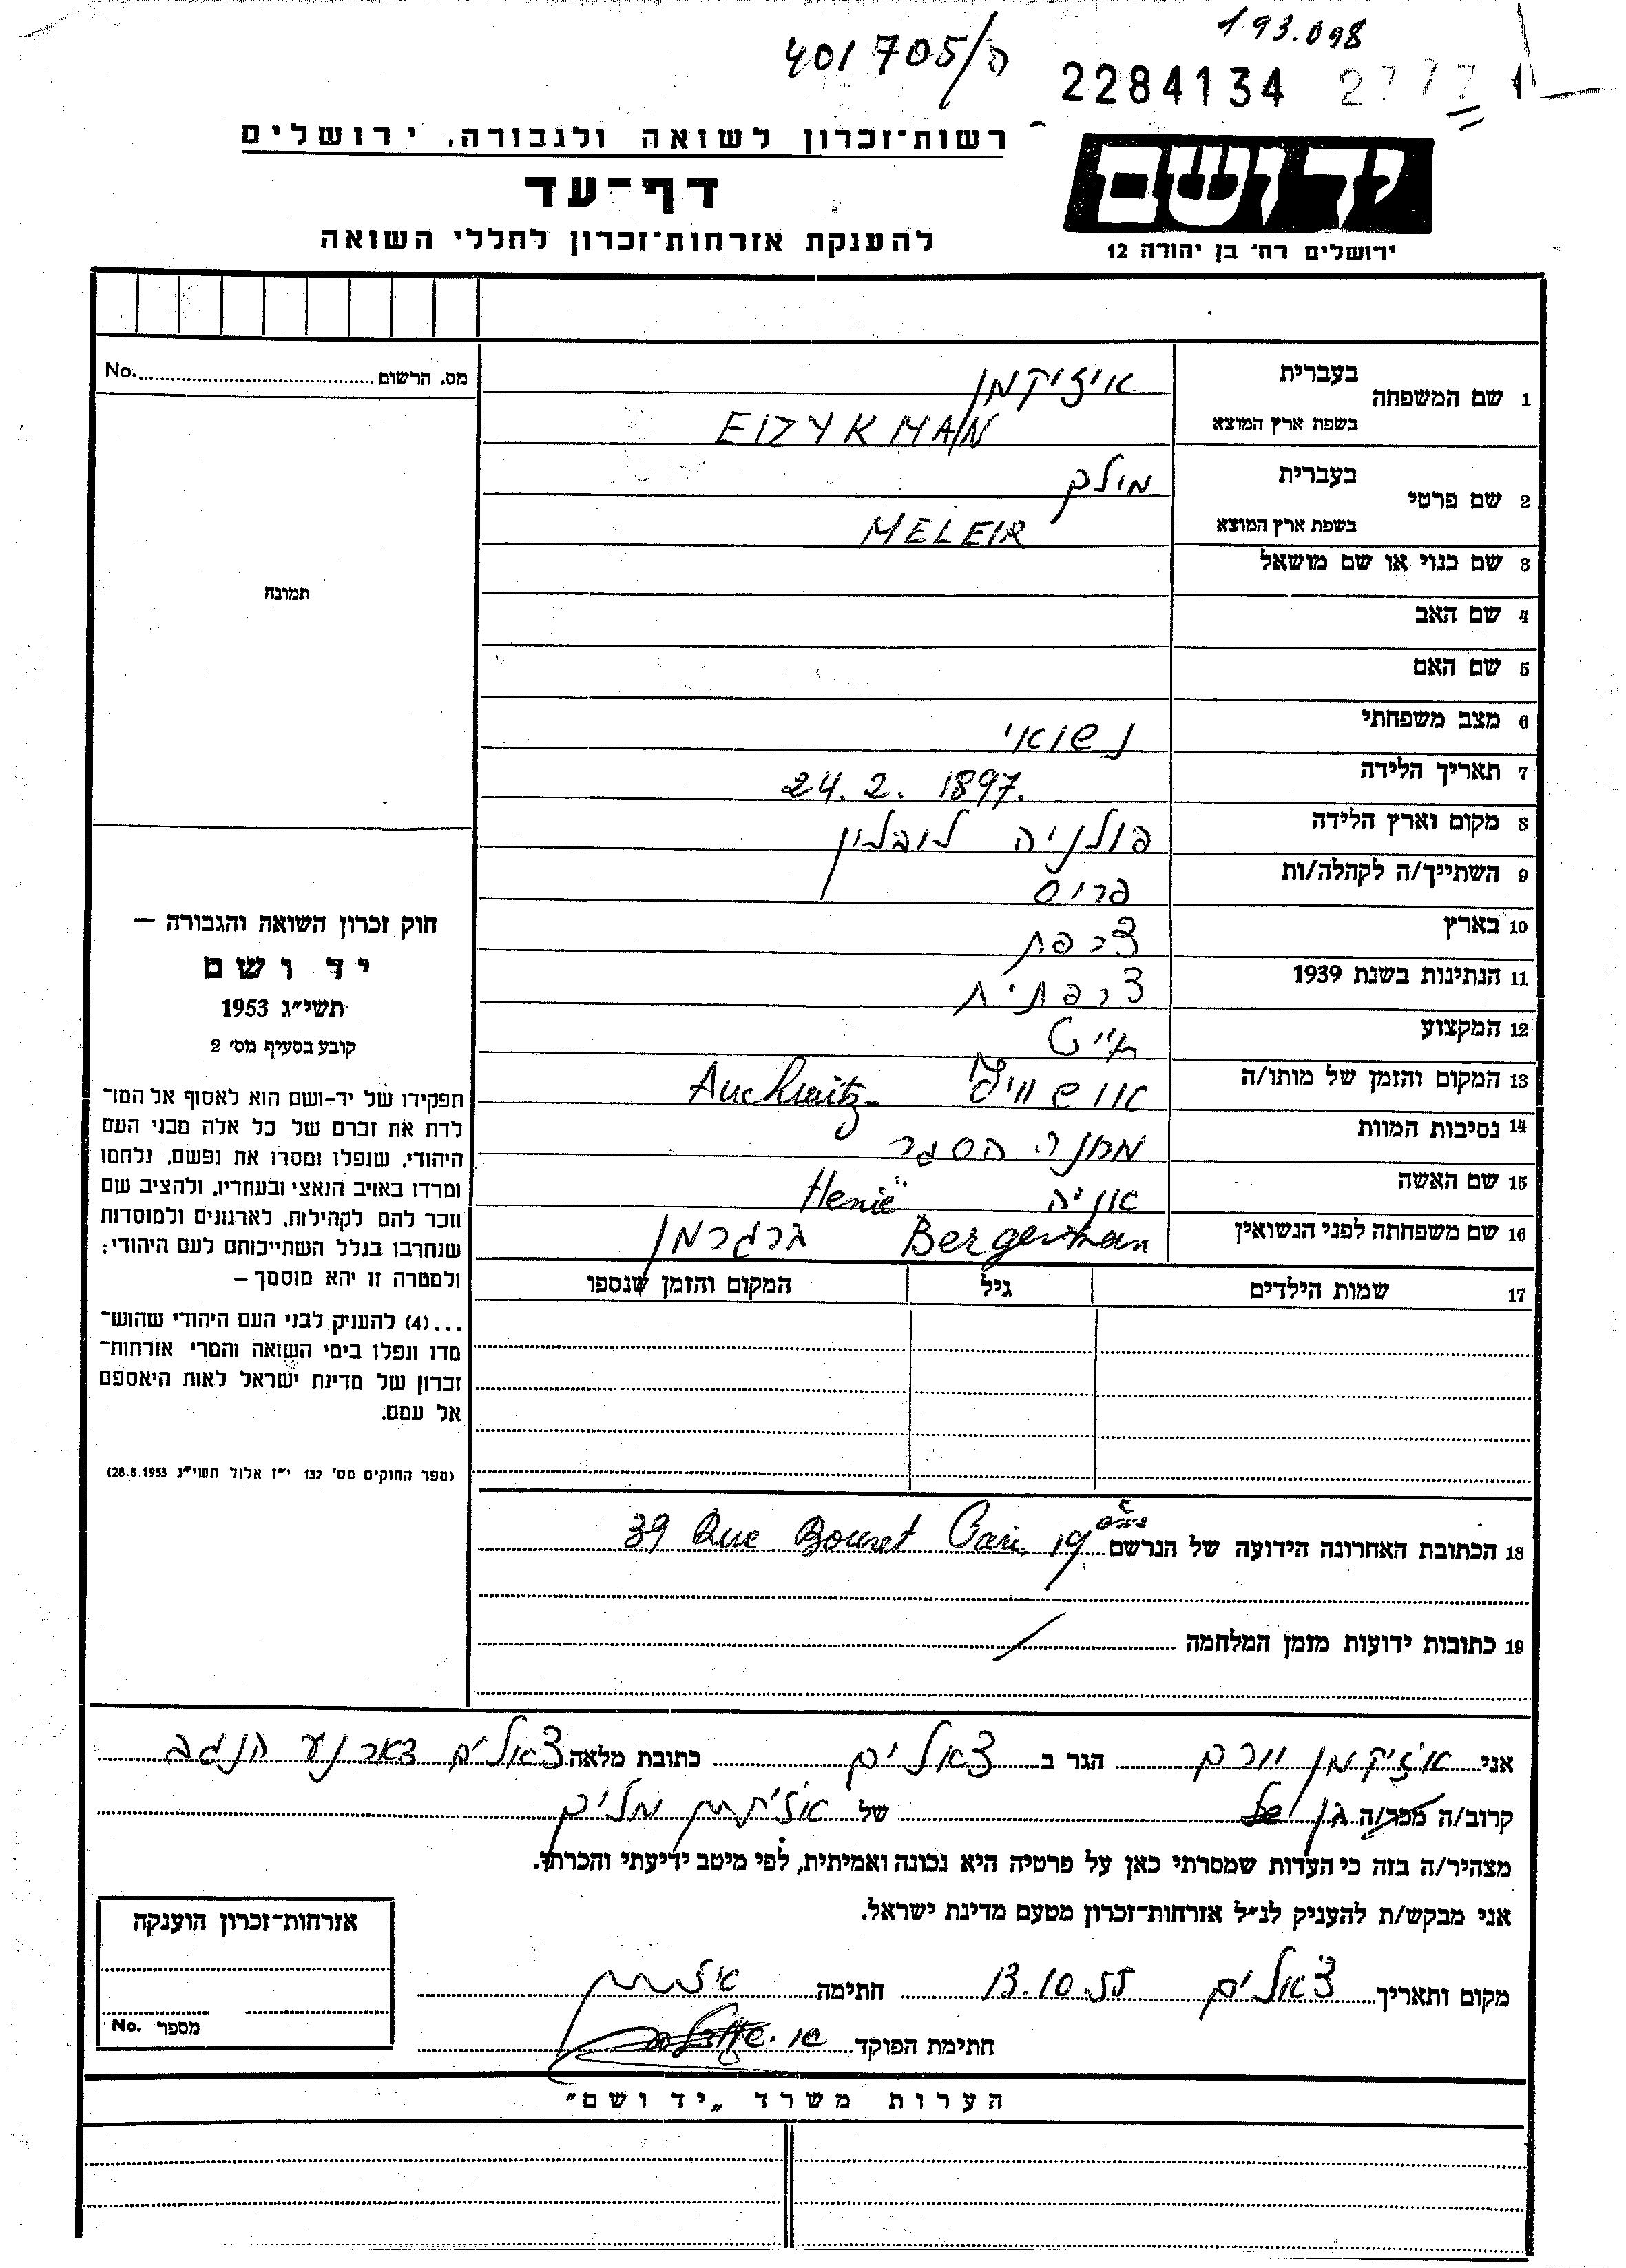 193.098
401705/ה
2284134 2777
רשות־זכרון לשואה ולגבורה, ירושלים
יד ושם
דף־עד
להענקת אזרחות־זכרון לחללי השואה
ירושלים רח׳ בן יהודה 12
מס. הרשום No.
1 שם המשפחה בעברית איזיקמן
בשפת ארץ המוצא EIZYKMAN
2 שם פרטי בעברית מילך
בשפת ארץ המוצא MELEIR
3 שם כנוי או שם מושאל
4 שם האב
5 שם האם
6 מצב משפחתי נשואי
7 תאריך הלידה 24.2. 1897.
8 מקום וארץ הלידה פולניה לובלין
9 השתייך/ה לקהלה/ות פריס
10 בארץ צרפת
11 הנתינות בשנת 1939 צרפתית
12 המקצוע חייט
13 המקום והזמן של מותו/ה אוושוויץ Auchwitz
14 נסיבות המוות מחנה הסגר
15 שם האשה אניה Henië
16 שם משפחתה לפני הנשואין Bergerman ברגרמן
17 שמות הילדים גיל המקום והזמן שנספו
תמונה
חוק זכרון השואה והגבורה —
יד ושם
תשי״ג 1953
קובע בסעיף מס׳ 2
תפקידו של יד-ושם הוא לאסוף אל המו־
לדת את זכרם של כל אלה מבני העם
היהודי, שנפלו ומסרו את נפשם, נלחמו
ומרדו באויב הנאצי ובעוזריו, ולהציב שם
וזכר להם לקהילות, לארגונים ולמוסדות
שנחרבו בגלל השתייכותם לעם היהודי;
ולמטרה זו יהא מוסמך –
...(4) להעניק לבני העם היהודי שהוש־
מדו ונפלו בימי השואה והמרי אזרחות־
זכרון של מדינת ישראל לאות היאספם
אל עמם.
(ספר החוקים מס׳ 132 י״ז אלול תשי״ג 28.8.1953)
18 הכתובת האחרונה הידועה של הנרשם 39 Rue Bouret Paris 19
19 כתובות ידועות מזמן המלחמה
אני איזיקמן יורם הגר ב צאלים כתובת מלאה צאלים דאר נע הנגב
קרוב/ה מכר/ה בן של איזיקמן מליך
מצהיר/ה בזה כי העדות שמסרתי כאן על פרטיה היא נכונה ואמיתית, לפי מיטב ידיעתי והכרתי.
אני מבקש/ת להעניק לנ״ל אזרחות־זכרון מטעם מדינת ישראל.
מקום ותאריך צאלים 13.10.55 חתימה
חתימת הפוקד
אזרחות־זכרון הוענקה
מספר No.
הערות משרד „יד ושם״